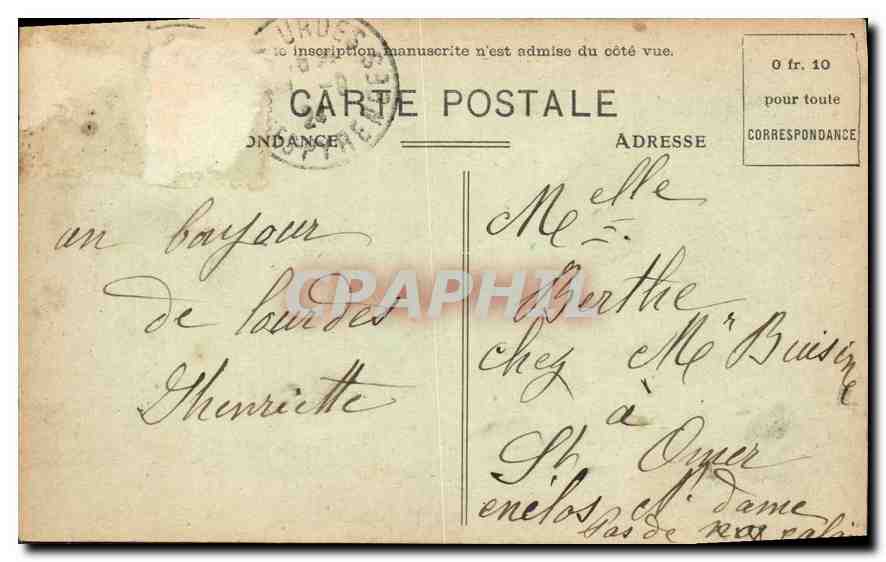 inscription manuscrite n'est admise du côté vue.
CARTE POSTALE
ONDANCE
ADRESSE
0 fr. 10
pour toute
CORRESPONDANCE
OURDES
PYRENEES
24
un bonjour
de lourdes
Henriette
Melle
Berthe
chez Mr Buisine
à
St Omer
enclos N. dame
Pas de Calais
CPAPHIL